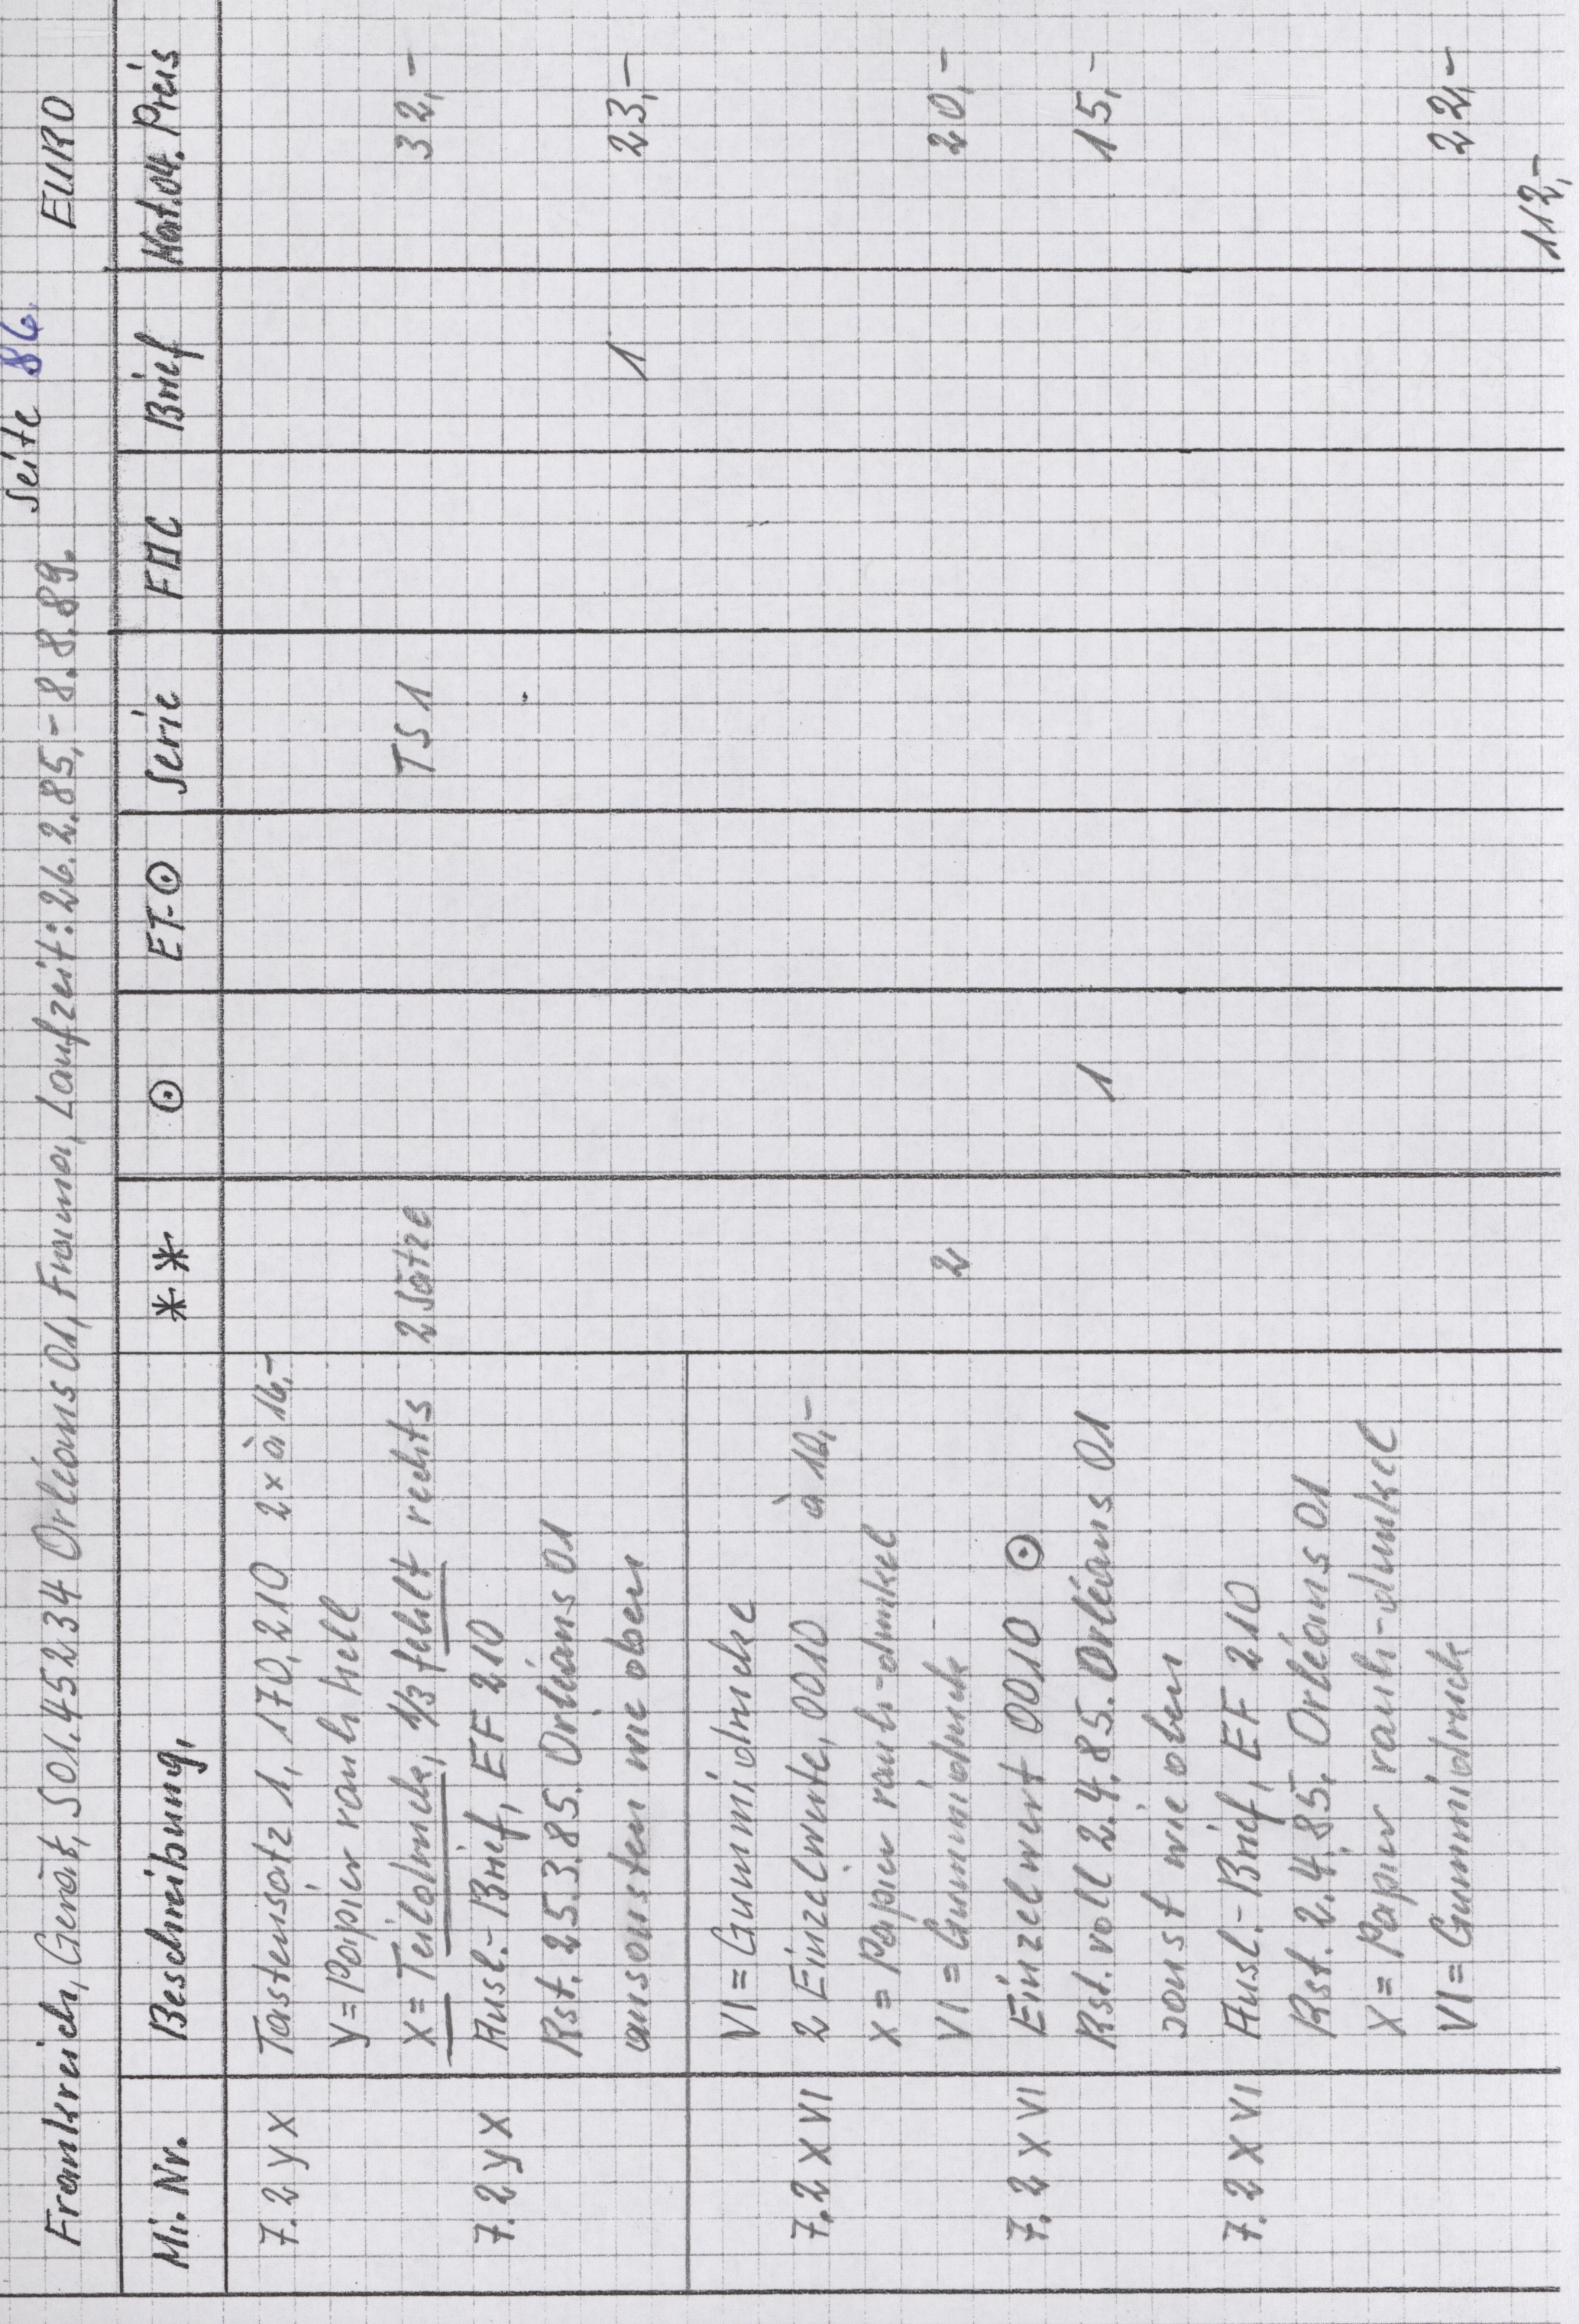 Seite 86
Frankreich, Gerät, 501.45234 Orléans 01, Frama, Laufzeit: 26.2.85,- 8.8.89. EURO
Mi. Nr. Beschreibung, ** ⊙ ET-⊙ Serie FDC Brief Kat.04. Preis
7.2 y X Tastensatz 1, 170, 210 2x à 16,-
y = Papier rauh hell
X = Teildruck, 1/3 fehlt rechts 2 Sätze TS 1 32,-
7.2 y X Ausl.- Brief, EF 210
Rst. 25.3.85. Orléans 01
ansonsten wie oben 1 23,-
VI = Gummidrucke
7.2 X VI 2 Einzelwerte, 0010 à 10,-
x = Papier rauh-dunkel
VI = Gummidruck 2 20,-
7.2 X VI Einzelwert 0010 ⊙
Rst. voll 2.4.85. Orléans 01 1 15,-
sonst wie oben
7.2 X VI Ausl.- Brief, EF 210
Rst. 2.4.85. Orléans 01
X = Papier rauh-dunkel
VI = Gummidruck 22,-
112,-